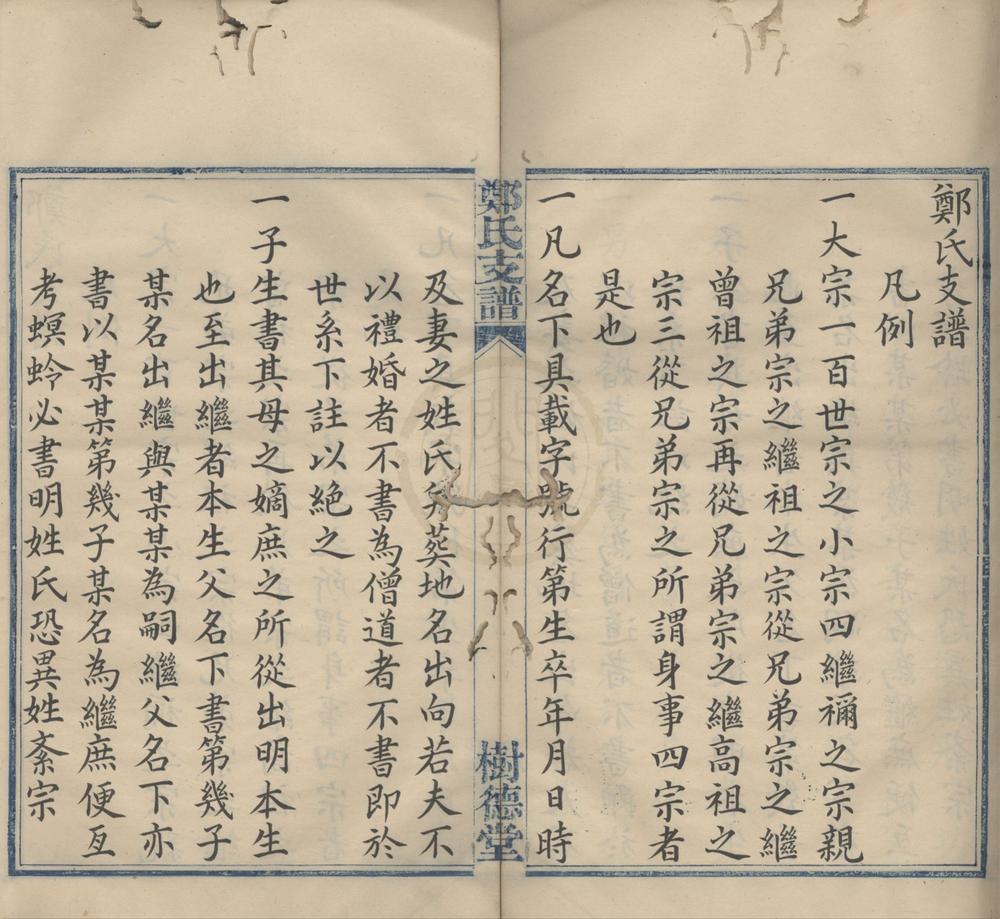 鄭氏支譜
凡例
一大宗一百世宗之小宗四繼禰之宗親
兄弟宗之繼祖之宗從兄弟宗之繼
曾祖之宗再從兄弟宗之繼高祖之
宗三從兄弟宗之所謂身事四宗者
是也
一凡名下具載字號行第生卒年月日時
鄭氏支譜
樹德堂
及妻之姓氏、葬地名出向若夫不
以禮婚者不書為僧道者不書即於
世系下註以絕之
一子生書其母之嫡庶之所從出明本生
也至出繼者本生父名下書第幾子
某名出繼與某某為嗣繼父名下亦
書以某某第幾子某名為繼庶便亙
考螟蛉必書明姓氏恐異姓紊宗